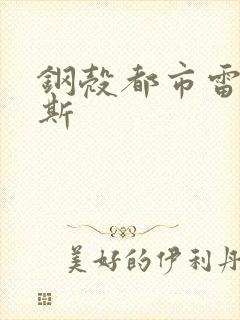 鋼殼都市雷
斯
美好的伊利丹